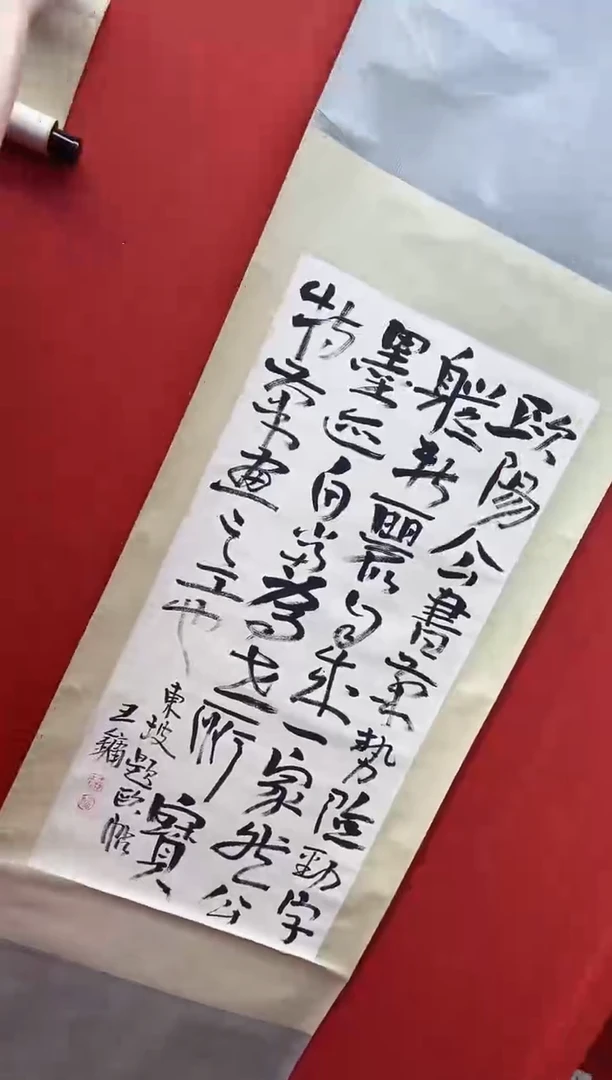 歐陽公書筆势險勁字
軆新麗自成一家然公
墨迹自當為世所寶
特筆畫之工也
東坡題歐帖
王鏞